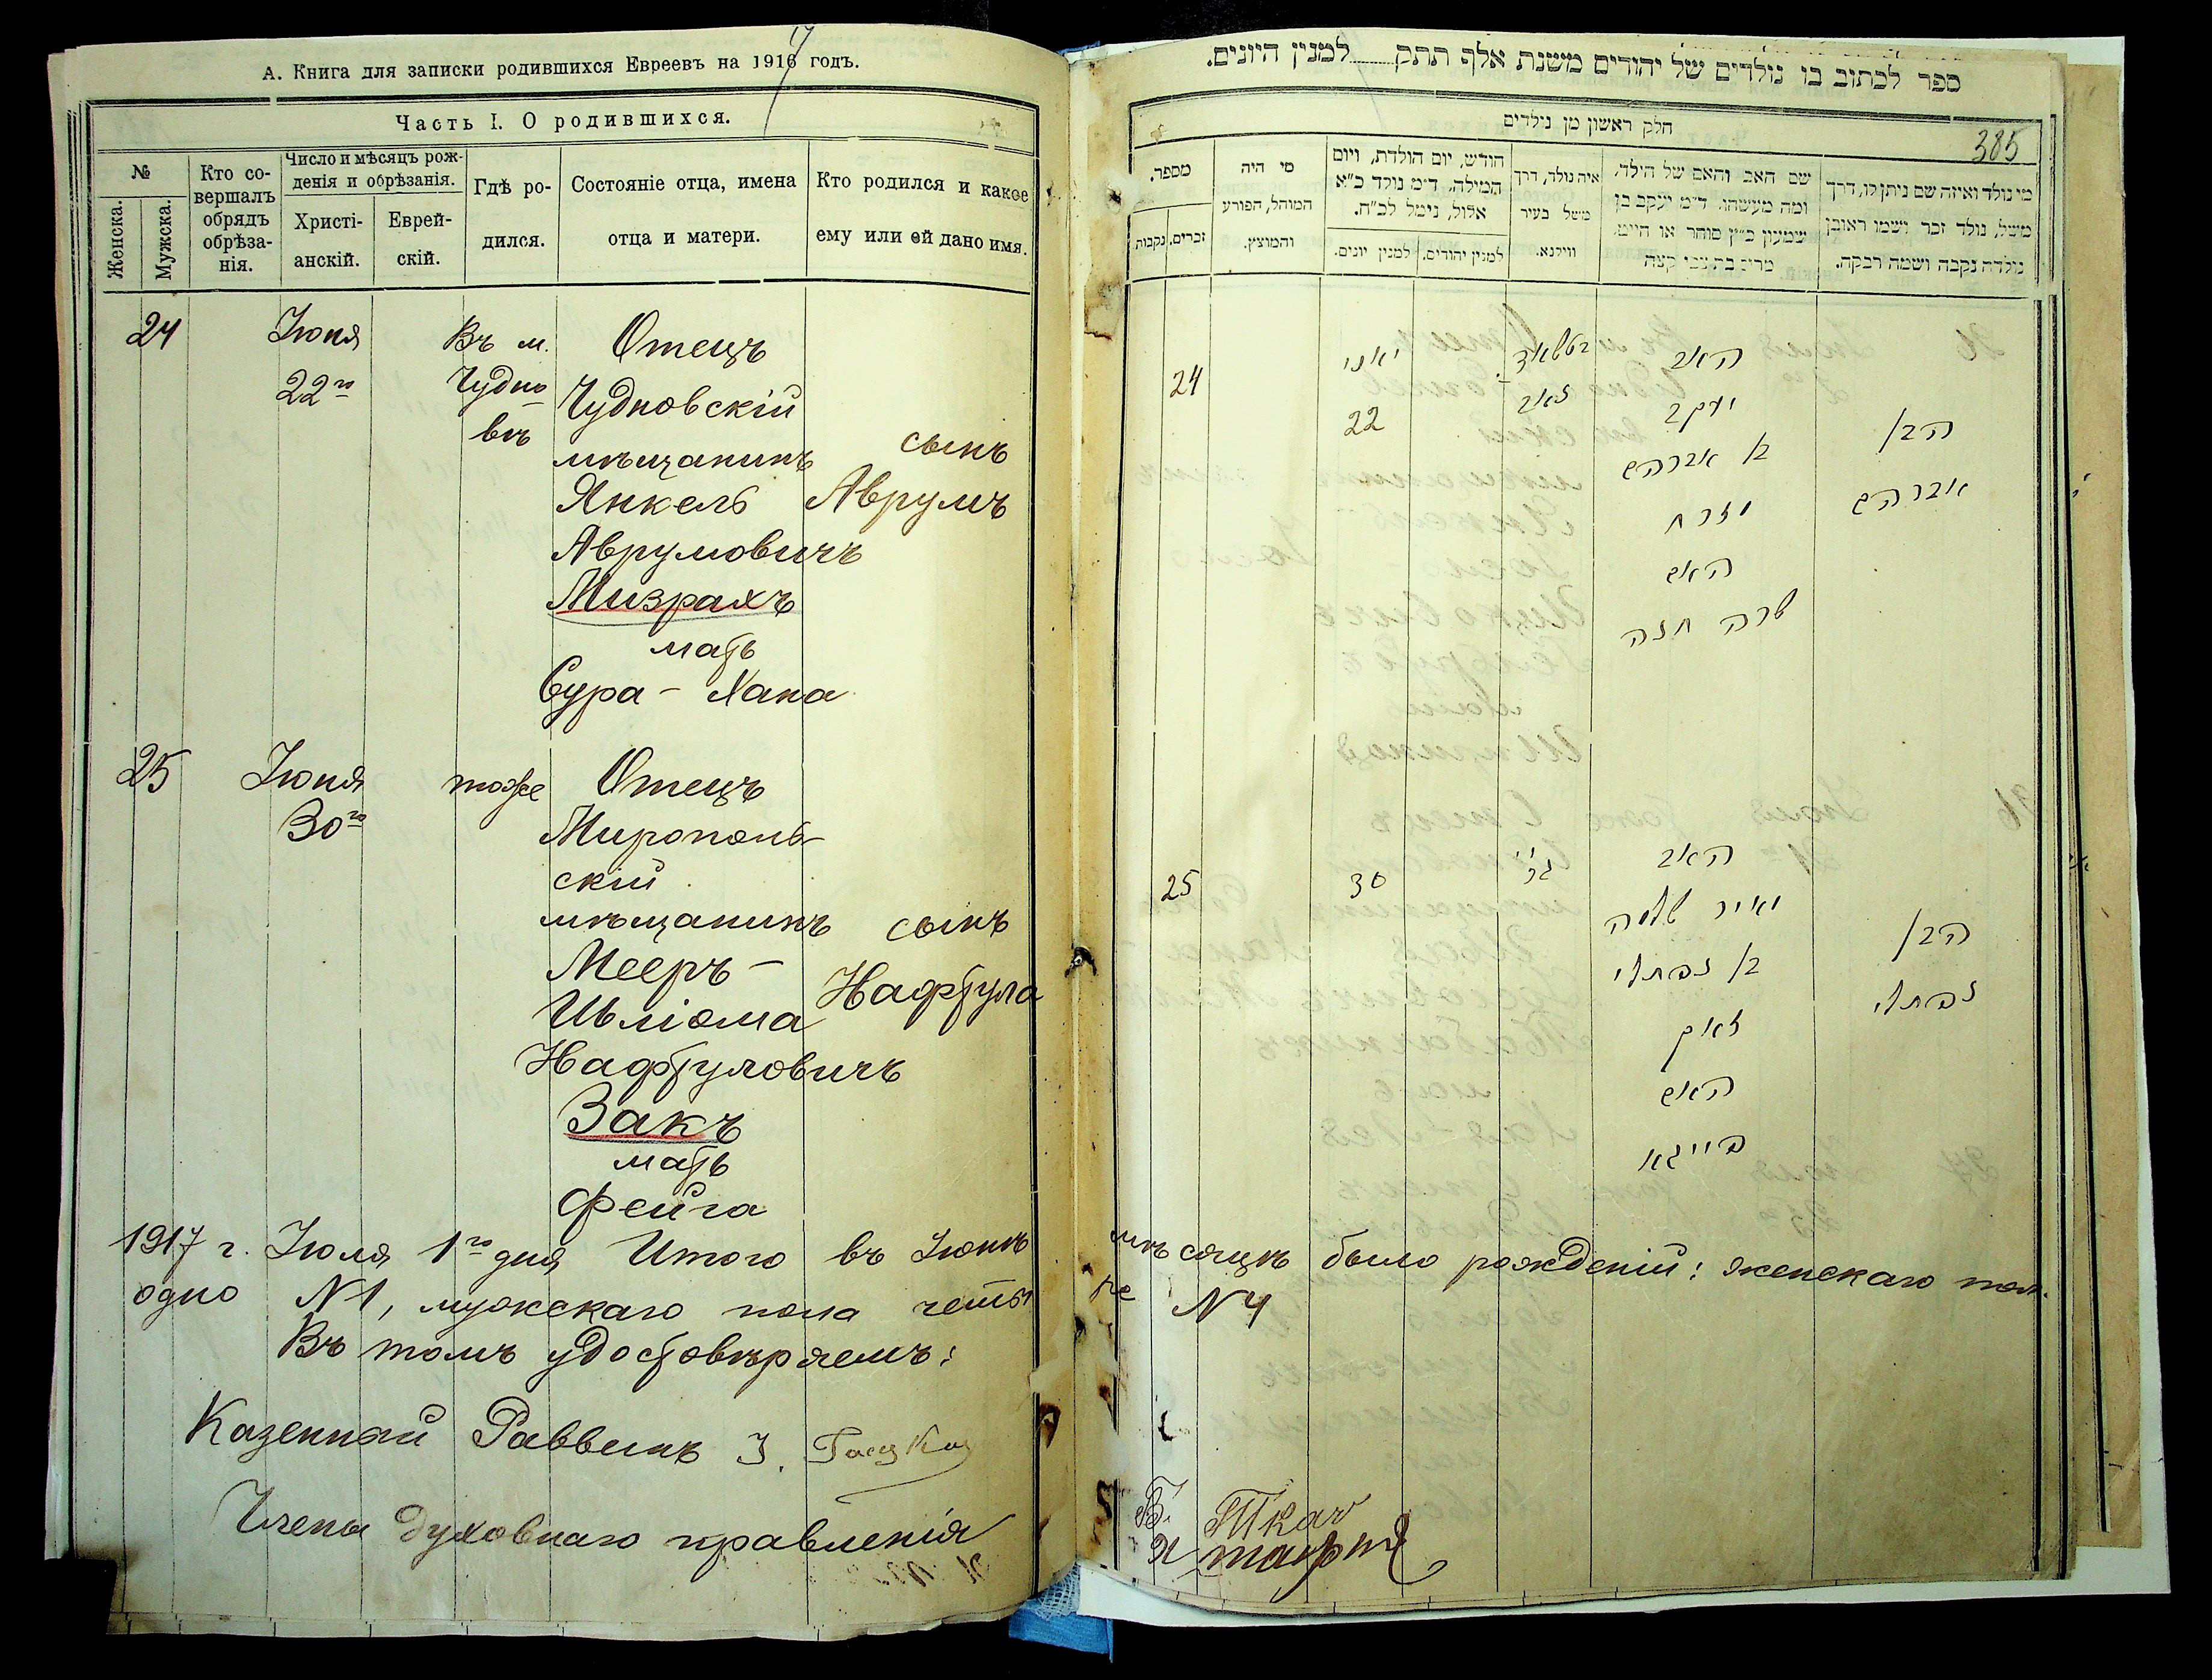 А. Книга для записки родившихся Евреевъ на 1917 годъ.
Часть I. О родившихся.
№
Женска.
Мужска.
Кто совершалъ обрядъ обрѣзанія.
Число и мѣсяцъ рожденія и обрѣзанія.
Христіанскій.
Еврейскій.
Гдѣ родился.
Состояніе отца, имена отца и матери.
Кто родился и какое ему или ей дано имя.
24
Іюня
22го
Въ м.
Чудно
вѣ
Отецъ
Чудновскій
мѣщанинъ
Янкель
Аврумовичъ
Мизрахъ
мать
Сура - Хана
сынъ
Аврумъ
25
Іюня
30го
тоже
Отецъ
Мирополь-
скій
мѣщанинъ
Мееръ -
Шліома
Нафтуловичъ
Закъ
мать
Фейга
сынъ
Нафтула
1917 г. Іюля 1го дня Итого въ Іюнѣ мѣсяцѣ было рожденій: женскаго пол.
одно N 1, мужскаго пола четыре N 4
Въ томъ удостовѣряемъ:
Казенный Раввинъ
Члены духовнаго правленія
ספר לכתוב בו נולדים של יהודים משנת אלף תתק למנין היונים.
385
חלק ראשון מן נולדים
מספר.
זכרים.
נקבות
מי היה המוהל, הפורע והמוצץ.
חודש, יום הולדת, ויום המילה, ד״מ נולד כ״א אלול, נימל לכ״ח.
למנין יונים.
למנין יהודים.
איה נולד, דרך משל בעיר ווילנא.
שם האב והאם של הילד, ומה מעשהו, ד״מ יעקב בן שמעון כ״ץ סוחר או חייט,
מי נולד ואיזה שם ניתן לו, דרך משל, נולד זכר ושמו ראובן נולדה נקבה ושמה רבקה.
24
יאני
22
האב
יעקב
בן אברהם
מזרח
האם
שרה חנה
הבן
אברהם
25
30
האב
מאיר שלמה
בן נפתלי
זאק
האם
פייגא
הבן
נפתלי
Ткач